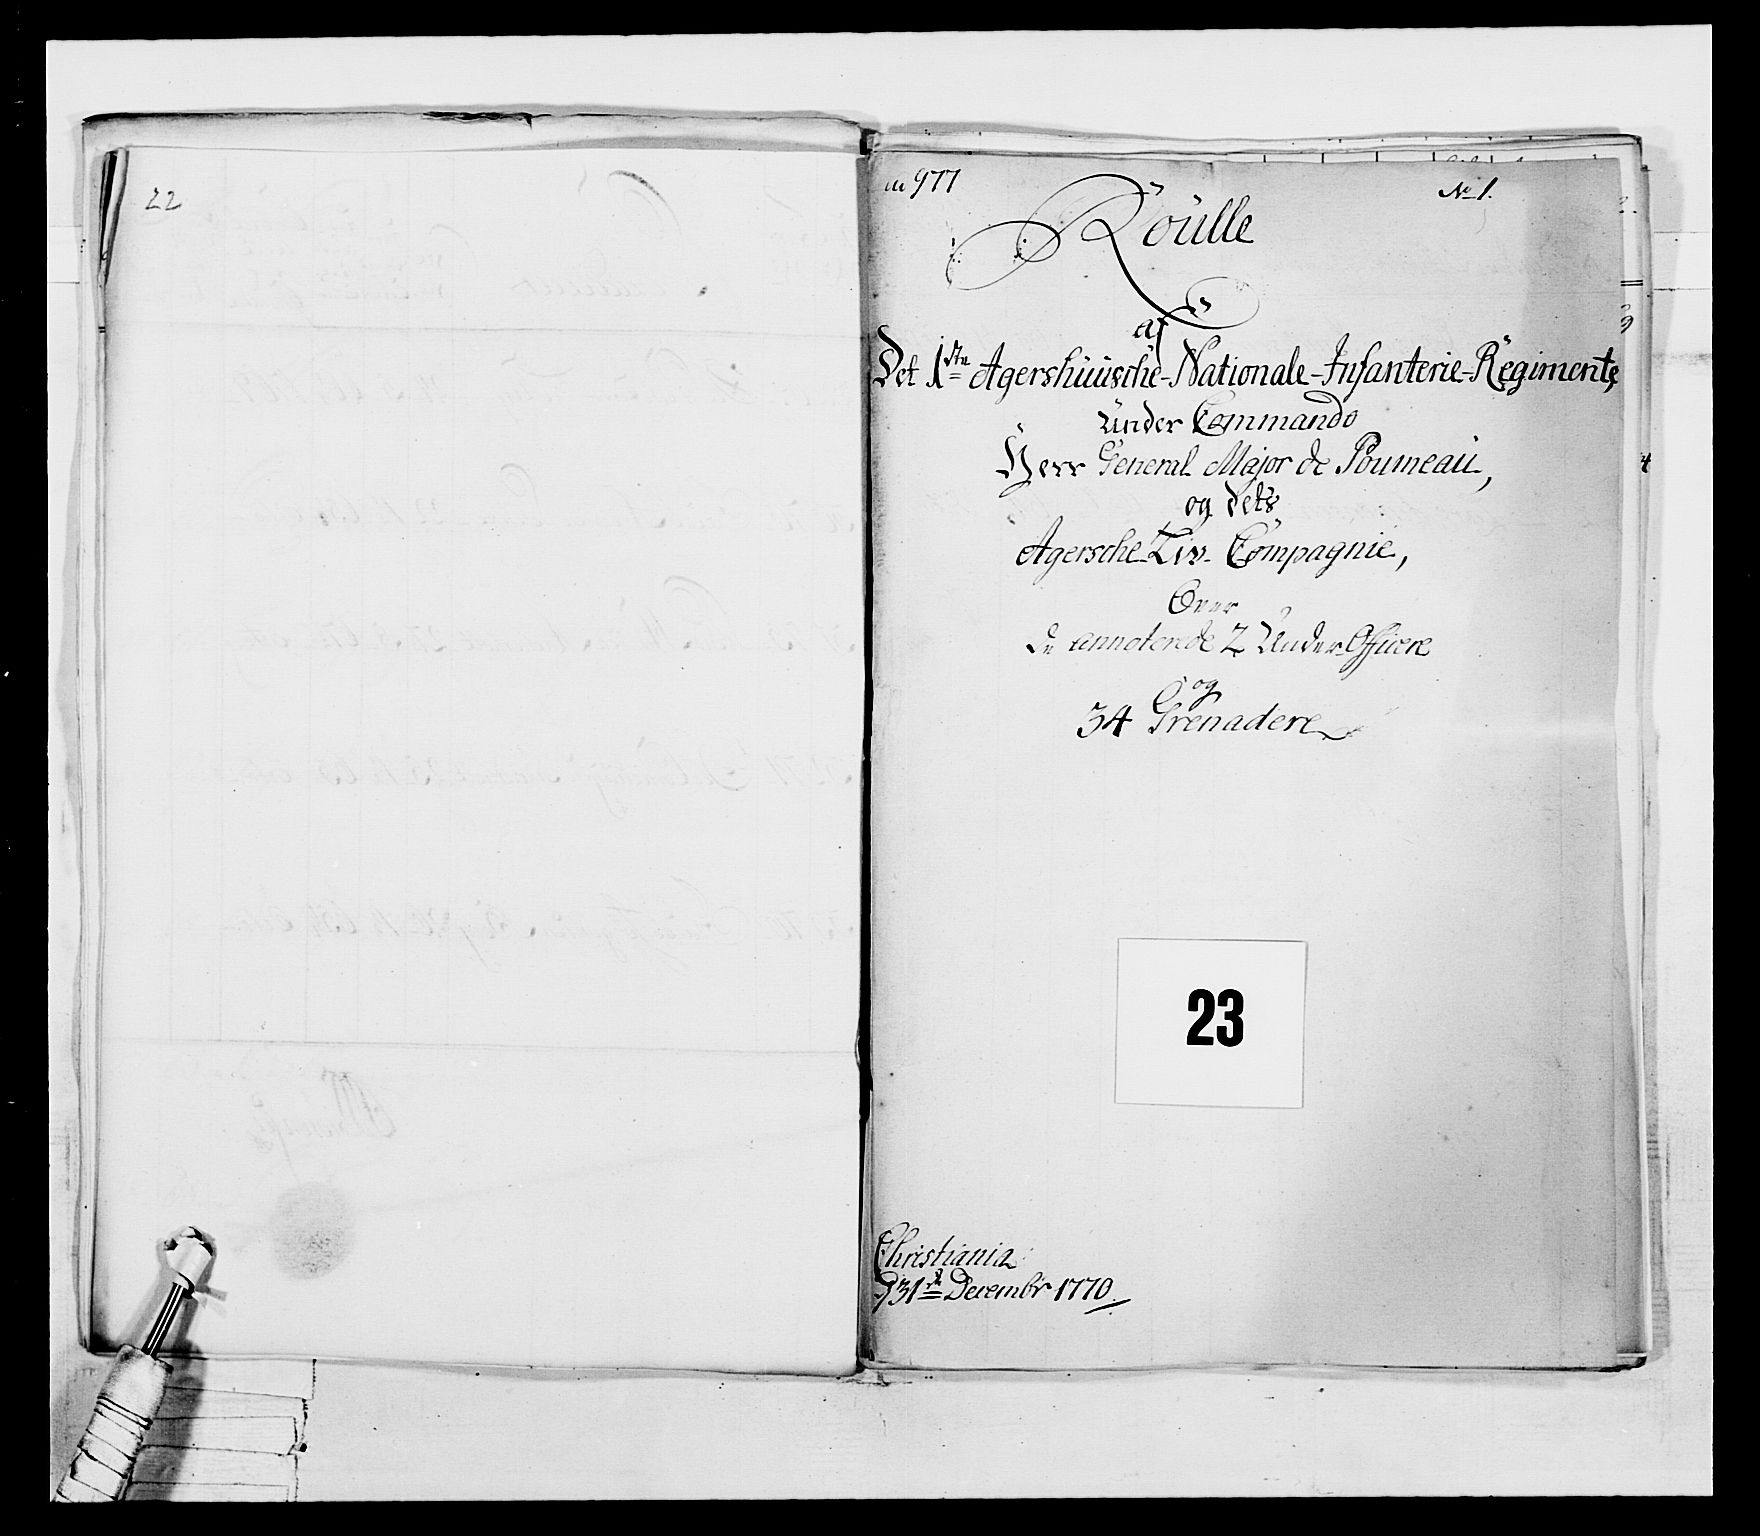 22
977
No 1.
Roülle
af
Det 1ste Agershüüsche-Nationale-Infanterie-Regiments
Ünder Commando
Herr General Major de Poumeaü,
og dets
Agersche Liv-Compagnie,
Over
de annoterede 2 Ünder Officere
og
34 Grenadere
23
Christiania
d 31te Decembr 1770.